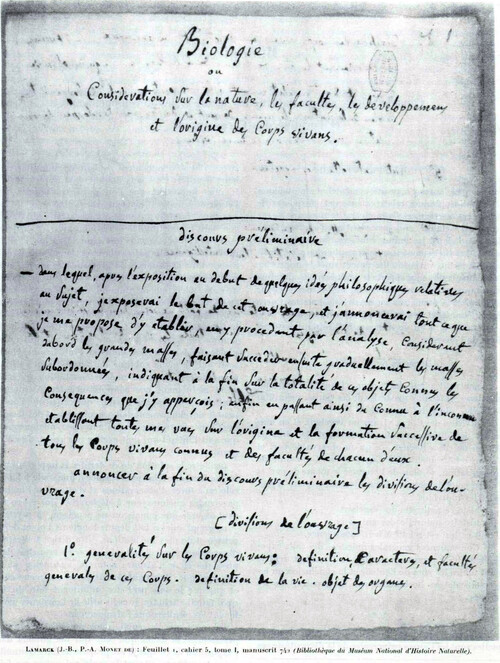 Biologie
ou
Considerations sur la nature, les facultés, les développemens
et l'origine des Corps vivans.
discours préliminaire
— dans lequel, après l'exposition au debut de quelques idés philosophiques relatives
au Sujet, j'exposerai le but de cet ouvrage, et j'annoncerai tout ce que
je me propose d'y etablir, en y procedant par l'analyse, Considerant
dabord les grandes masses, faisant succéder ensuite graduellement les masses
Subordonnées, indiquant à la fin sur la totalité de ces objets Connus les
Consequences que j'y apperçois; enfin en passant ainsi du Connu à l'inconnu
etablissant toutes mes vues sur l'origine et la formation successive de
tous les Corps vivans connus et des facultés de chacun d'eux.
annoncer à la fin du discours préliminaire les divisions de l'ou-
vrage.
[divisions de l'ouvrage]
1º. generalités sur les Corps vivans: definition, Caracteres, et facultés
generales de ces Corps. definition de la vie. objet des organes.
LAMARCK (J.-B., P.-A. MONET DE) : Feuillet 1, cahier 5, tome I, manuscrit 742 (Bibliothèque du Muséum National d'Histoire Naturelle).